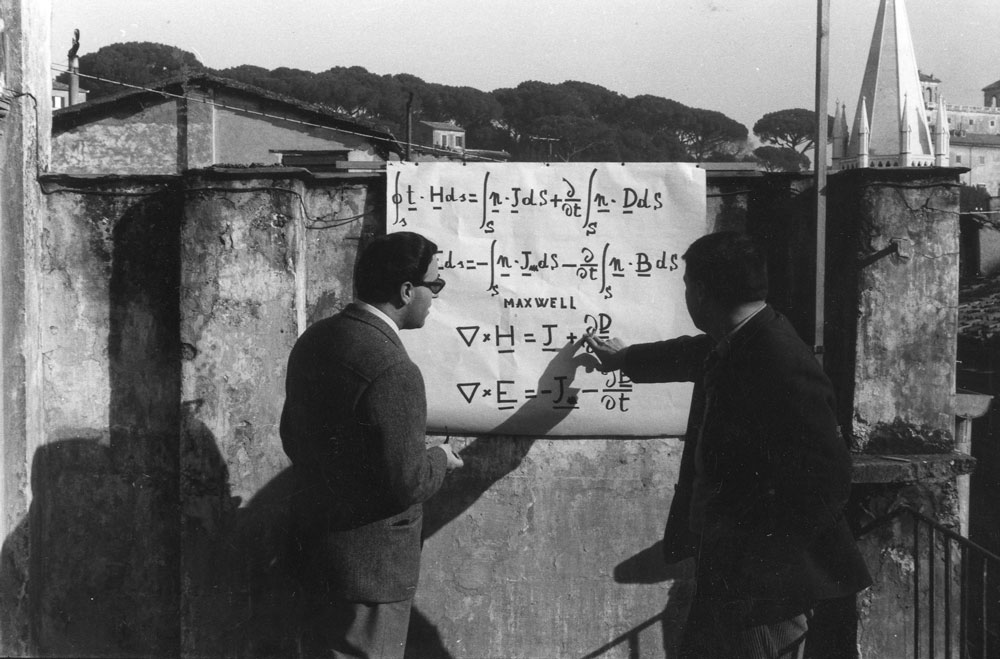 ∮ₛ t · H ds = ∫ₛ n · J dS + ∂/∂t ∫ₛ n · D dS
ds = - ∫ₛ n · Jₘ dS - ∂/∂t ∫ₛ n · B dS
MAXWELL
∇ × H = J + ∂D
∇ × E = - Jₘ - ∂B/∂t